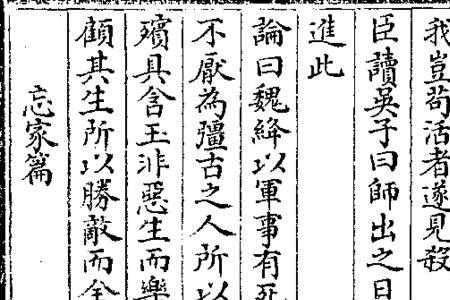 我豈苟活者遂見殺
臣讀吳子曰師出之日
進此
論曰魏絳以軍事有死
不厭為彊古之人所以
殯具含玉非惡生而樂
顧其生所以勝敵而全
忘家篇